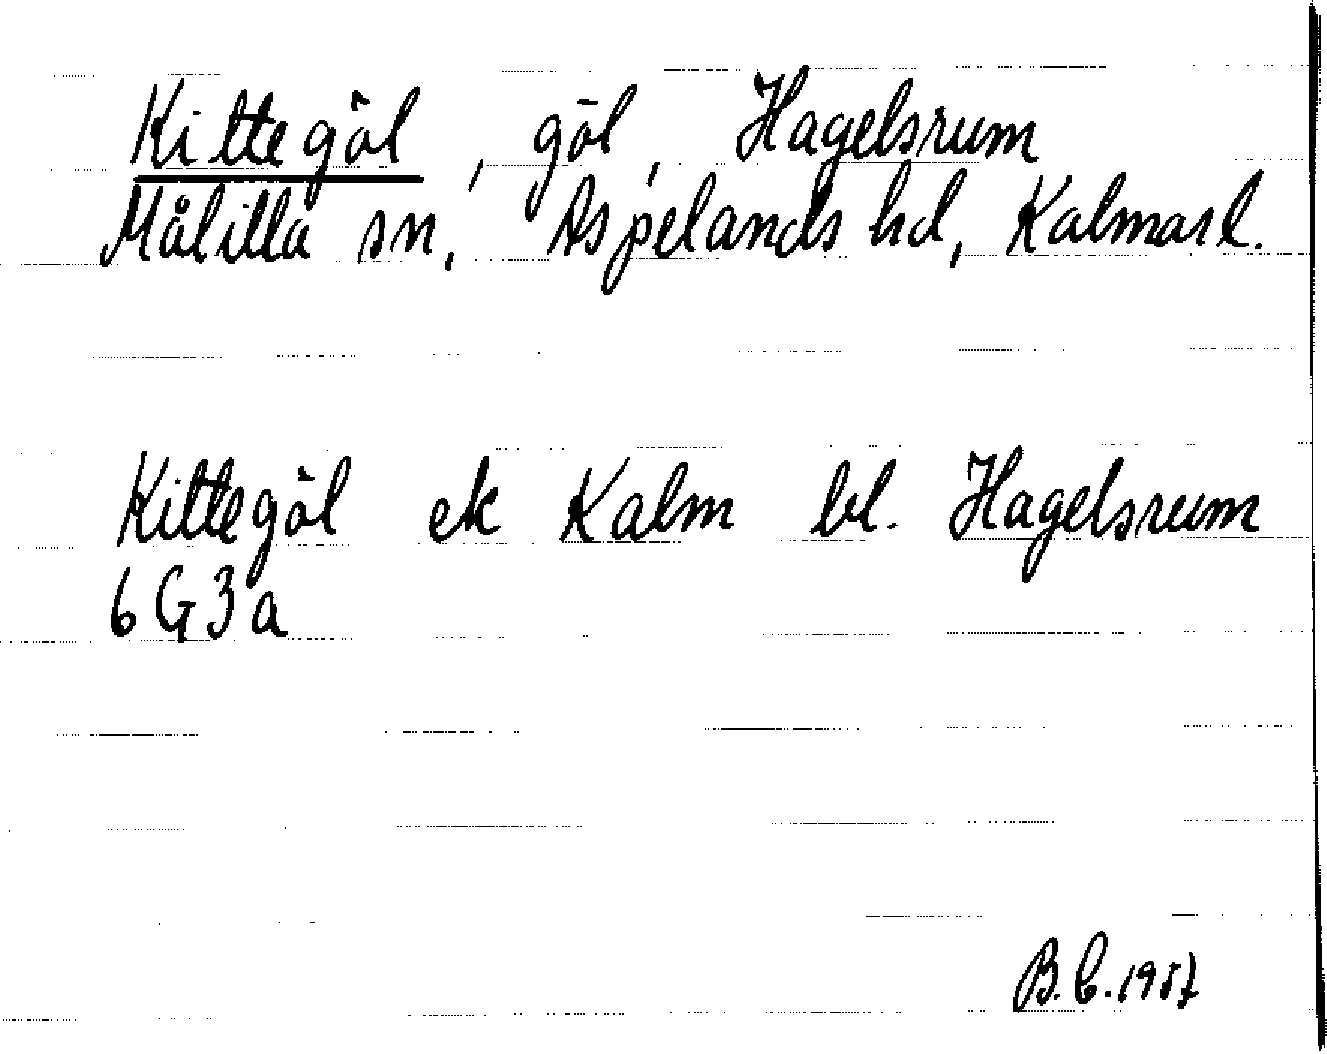 Kittegöl, göl, Hagelsrum
Målilla sn, Aspelands hd, Kalmar l.
Kittegöl ek Kalm bl. Hagelsrum
6G3a
B.C. 1957